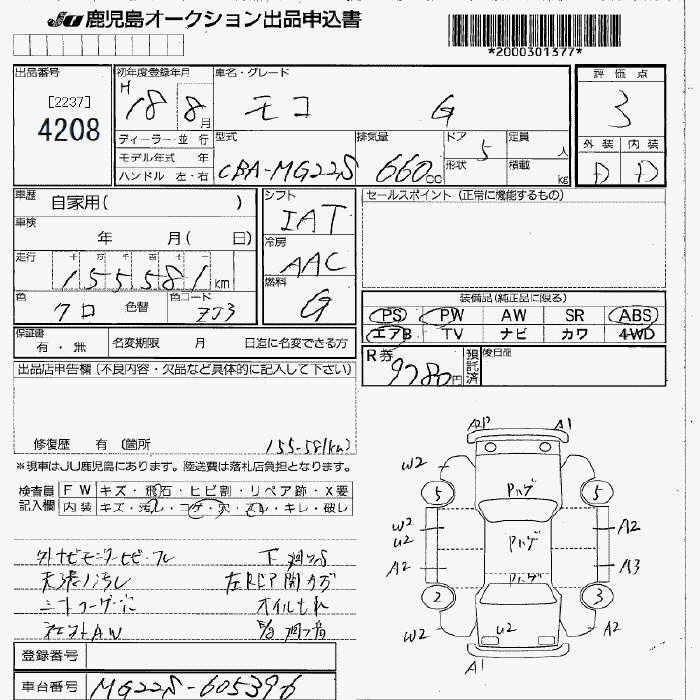 JU 鹿児島オークション出品申込書
*2000301377*
出品番号 初年度登録年月 車名・グレード 評価点
[2237] H 18 8月 モコ G 3
4208
ディーラー・並行 型式 排気量 ドア 5 定員 人 外装 内装
モデル年式 年 CBA-MG22S 660cc 形状 積載 kg D D
ハンドル 左・右
車歴 自家用( ) シフト IAT セールスポイント(正常に機能するもの)
車検 年 月( 日) 冷房 AAC
走行 十 万 千 百 十 一 燃料 G
155581km
色 クロ 色替 色コード ZJ3
装備品(純正品に限る)
PS PW AW SR ABS
エアB TV ナビ カワ 4WD
保証書 有・無 名変期限 月 日迄に名変できる方
R券 9780円 預託済 後日品
出品店申告欄(不良内容・欠品など具体的に記入して下さい)
修復歴 有(箇所 155-581km)
※現車はJU鹿児島にあります。陸送費は落札店負担となります。
検査員記入欄 FW キズ・飛石・ヒビ割・リペア跡・X要
内装 キズ・汚レ・コゲ・穴・スレ・キレ・破レ
外ナビモニターヒビ・フレ 下廻りS
天張り汚レ
シートコーゲ・穴 オイルもれ
社外AW
登録番号
車台番号 MG22S-605396
A2P A1
W2 Pハゲ
5 5
W2 A2
U2 Pハゲ
A2 A3
Pハゲ
2 3
W2 U2 A2
A1